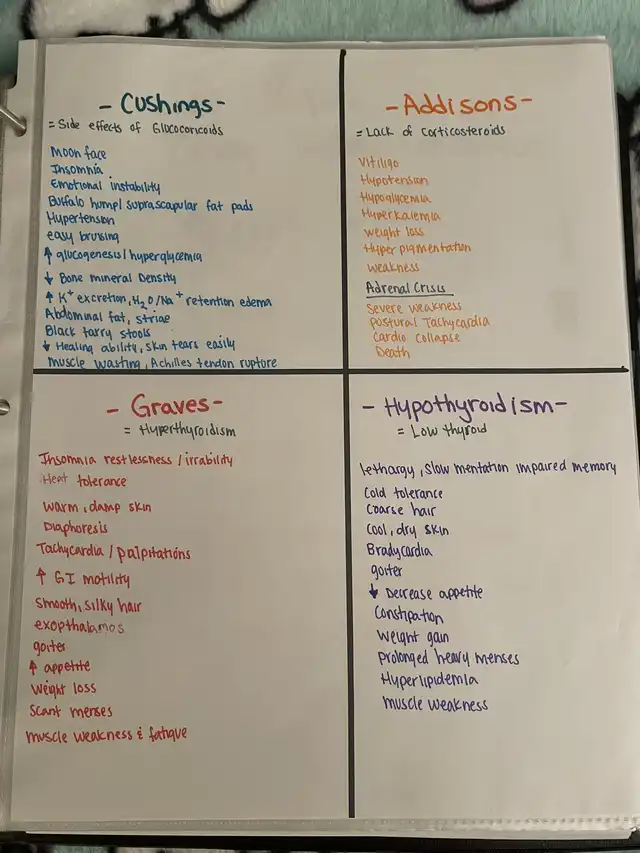 - Cushings -
= Side effects of Glucocoricoids
Moon face
Insomnia
Emotional instability
Buffalo hump/ suprascapular fat pads
Hypertension
easy bruising
↑ glucogenesis/hyperglycemia
↓ Bone mineral Density
↑ K+ excretion, H2O/Na+ retention edema
Abdominal fat, striae
Black tarry stools
↓ Healing ability, skin tears easily
muscle wasting, Achilles tendon rupture
- Addisons -
= Lack of corticosteroids
Vitiligo
Hypotension
Hypoglycemia
Hyperkalemia
weight loss
Hyper pigmentation
weakness
Adrenal Crisis
Severe weakness
Postural Tachycardia
Cardio collapse
Death
- Graves -
= Hyperthyroidism
Insomnia restlessness / irrability
Heat tolerance
warm, damp skin
Diaphoresis
Tachycardia / palpitations
↑ GI motility
Smooth, silky hair
exopthalamos
goiter
↑ appetite
Weight loss
Scant menses
muscle weakness & fatigue
- Hypothyroidism -
= Low thyroid
lethargy, slow mentation impaired memory
Cold tolerance
Coarse hair
Cool, dry skin
Bradycardia
goiter
↓ Decrease appetite
Constipation
Weight gain
Prolonged heavy menses
Hyperlipidemia
muscle weakness